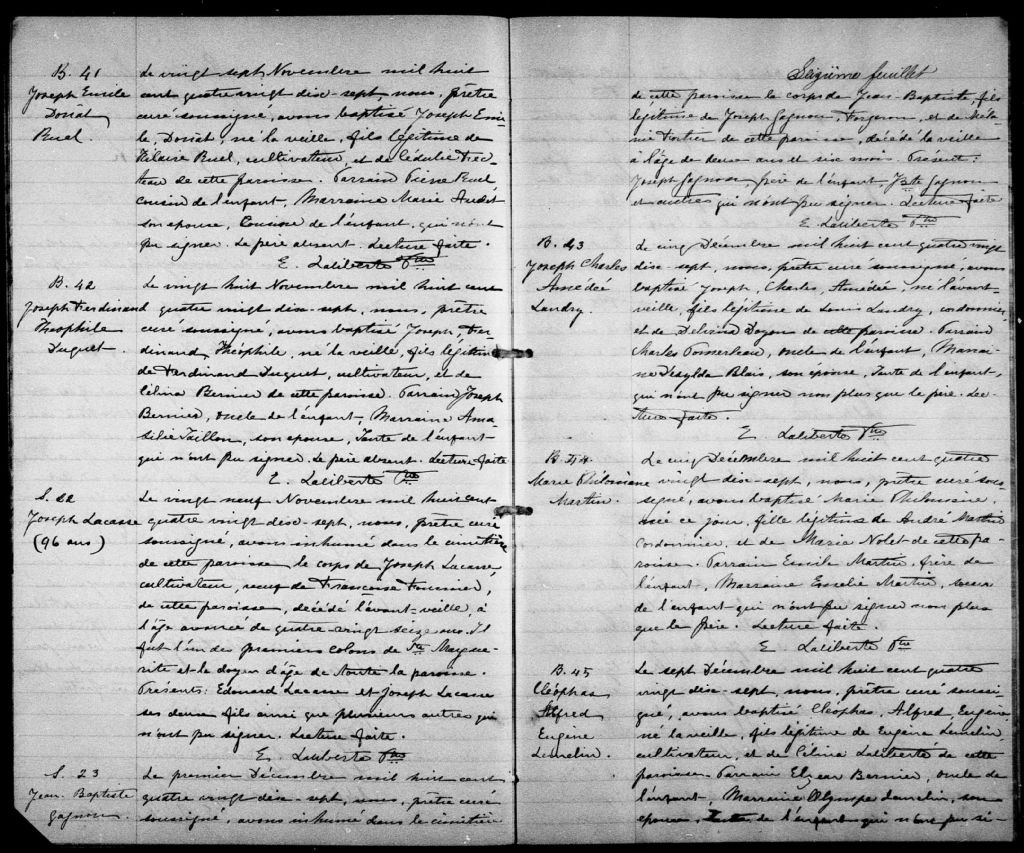 B. 41
Joseph Emile
Donat
Ruel
Le vingt sept Novembre mil huit
cent quatre vingt dix-sept nous, prêtre
curé soussigné, avons baptisé Joseph Emi-
le, Donat, né la veille, fils légitime de
Hilaire Ruel, cultivateur, et de Cédulie Trac-
teau de cette paroisse. Parrain Pierre Ruel
cousin de l'enfant, Marraine Marie Audet
son épouse, Cousine de l'enfant, qui n'ont
pu signer. Le père absent. Lecture faite.
E. Laliberté Ptre
B. 42
Joseph Ferdinand
Théophile
Duguet
Le vingt huit Novembre mil huit cent
quatre vingt dix-sept, nous, prêtre
curé soussigné, avons baptisé Joseph, Fer-
dinand, Théophile, né la veille, fils légitime
de Ferdinand Duguet, cultivateur, et de
Célina Bernier de cette paroisse. Parrain Joseph
Bernier, oncle de l'enfant, Marraine Ama-
Taillon, son épouse, Tante de l'enfant
qui n'ont pu signer. Le père absent. Lecture faite
E. Laliberté Ptre
S. 22
Joseph Lacasse
(96 ans)
Le vingt neuf Novembre mil huit cent
quatre vingt dix-sept, nous, prêtre curé
soussigné, avons inhumé dans le cimetière
de cette paroisse le corps de Joseph Lacasse,
cultivateur, veuf de Françoise Fournier,
de cette paroisse, décédé l'avant-veille, à
l'âge avancé de quatre-vingt seize ans. Il
fut l'un des premiers colons de Ste Margue-
rite et le doyen d'âge de toute la paroisse.
Présents: Edouard Lacasse et Joseph Lacasse
ses deux fils ainsi que plusieurs autres qui
n'ont pu signer. Lecture faite.
E. Laliberté Ptre
S. 23
Jean-Baptiste
Gagnon.
Le premier Décembre mil huit cent
quatre vingt dix-sept, nous, prêtre curé
soussigné, avons inhumé dans le cimetière
feuillet
de cette paroisse le corps de Jean-Baptiste, fils
légitime de Joseph Gagnon, Forgeron, et de Méla-
nie Fortier de cette paroisse, décédé la veille
à l'âge de deux ans et six mois. Présent:
Joseph Gagnon, père de l'enfant, Jbte Gagnon
et autres qui n'ont pu signer. Lecture faite
E. Laliberté Ptre
B. 43
Joseph Charles
Amédé
Landry.
Le cinq Décembre mil huit cent quatre vingt
dix-sept, nous, prêtre curé soussigné, avons
baptisé Joseph, Charles, Amédé, né l'avant-
veille, fils légitime de Louis Landry, cordonnier,
et de Delvina Doyon de cette paroisse. Parrain
Charles Pomerleau, oncle de l'enfant, Marrai-
ne Exylda Blais, son épouse, Tante de l'enfant,
qui n'ont pu signer non plus que le père. Lec-
ture faite.
E. Laliberté Ptre
B. 44.
Marie Philomène
Martin.
Le cinq Décembre mil huit cent quatre
vingt dix-sept, nous, prêtre curé sous-
signé, avons baptisé Marie Philomène,
née ce jour, fille légitime de André Martin
Cordonnier, et de Marie Nolet de cette pa-
roisse. Parrain Emile Martin, frère de
l'enfant, Marraine Emelie Martin, sœur
de l'enfant qui n'ont pu signer non plus
que le Père. Lecture faite.
E. Laliberté Ptre
B. 45
Cléophas
Alfred
Eugène
Lemelin.
Le sept Décembre mil huit cent quatre
vingt dix-sept, nous, prêtre curé soussi-
gné, avons baptisé Cléophas, Alfred, Eugène
né la veille, fils légitime de Eugène Lemelin,
cultivateur, et de Célina Laliberté de cette
paroisse. Parrain Elzéar Bernier, oncle de
l'enfant, Marraine Olympe Lemelin, son
épouse, Tante de l'enfant qui n'ont pu si-